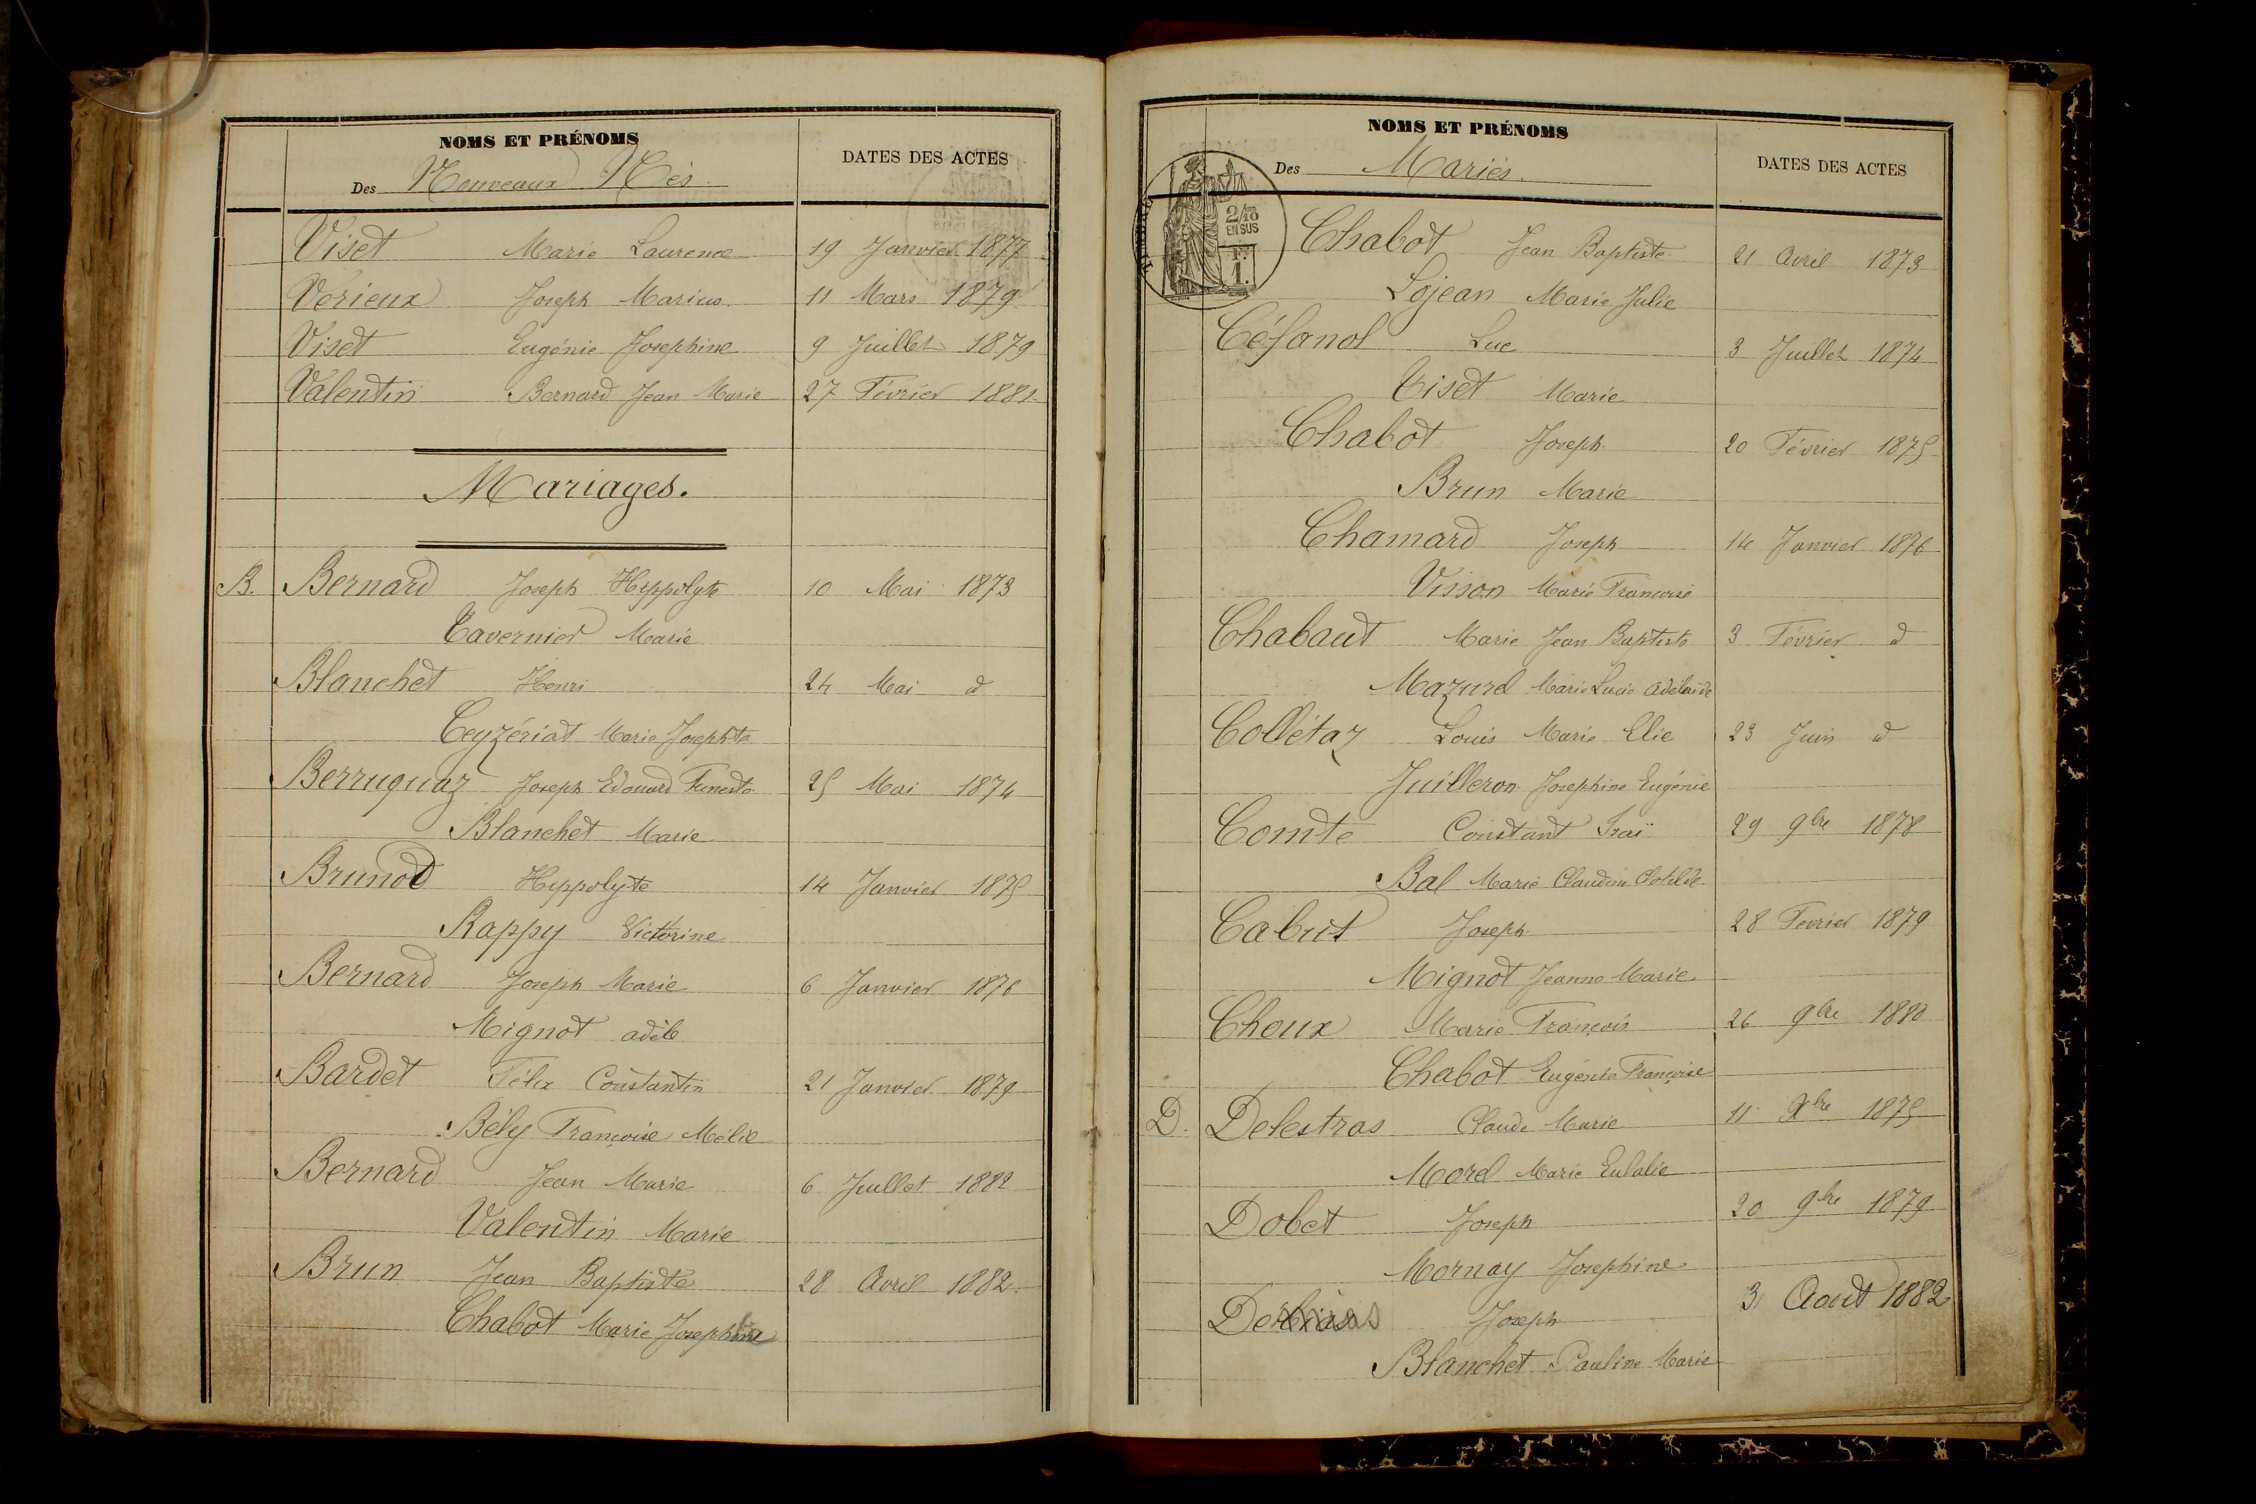 NOMS ET PRÉNOMS
Des Nouveaux Nés
DATES DES ACTES
Viset Marie Laurence 19 Janvier 1877
Vérieux Joseph Marius 11 Mars 1879
Viset Eugénie Josephine 9 Juillet 1879
Valentin Bernard Jean Marie 27 Février 1881
Mariages.
B. Bernard Joseph Hyppolyte 10 Mai 1873
Tavernier Marie
Blanchet Henri 24 Mai d
Ceyzériat Marie Josephte
Berruquaz Joseph Edouard 25 Mai 1874
Blanchet Marie
Brunod Hyppolyte 14 Janvier 1875
Rappy Victorine
Bernard Joseph Marie 6 Janvier 1876
Mignot adèle
Bardet Félix Constantin 21 Janvier 1879
Bély Françoise Mélie
Bernard Jean Marie 6 Juillet 1882
Valentin Marie
Brun Jean Baptiste 28 Avril 1882
Chabot Marie Josephine
NOMS ET PRÉNOMS
Des Mariés.
DATES DES ACTES
2/10
EN SUS
F.
1.
Chabot Jean Baptiste 21 Avril 1873
Lojean Marie Julie
Céfanol Luc 3 Juillet 1874
Viset Marie
Chabot Joseph 20 Février 1875
Brun Marie
Chamard Joseph 14 Janvier 1876
Visson Marie Françoise
Chabaut Marie Jean Baptiste 3 Février d
Mazurel Marie Lucie adélaïde
Collétaz Louis Marie Elie 23 Juin d
Juilleron Josephine Eugénie
Comte Constant 29 9bre 1878
Bal Marie Claudine Clotilde
Cabut Joseph 28 Fevrier 1879
Mignot Jeanne Marie
Choux Marie François 26 9bre 1880
Chabot Eugénie Françoise
D. Delestras Claude Marie 11 Xbre 1875
Morel Marie Eulalie
Dobet Joseph 20 9bre 1879
Mornay Josephine
Joseph 31 Aout 1882
Blanchet Pauline Marie